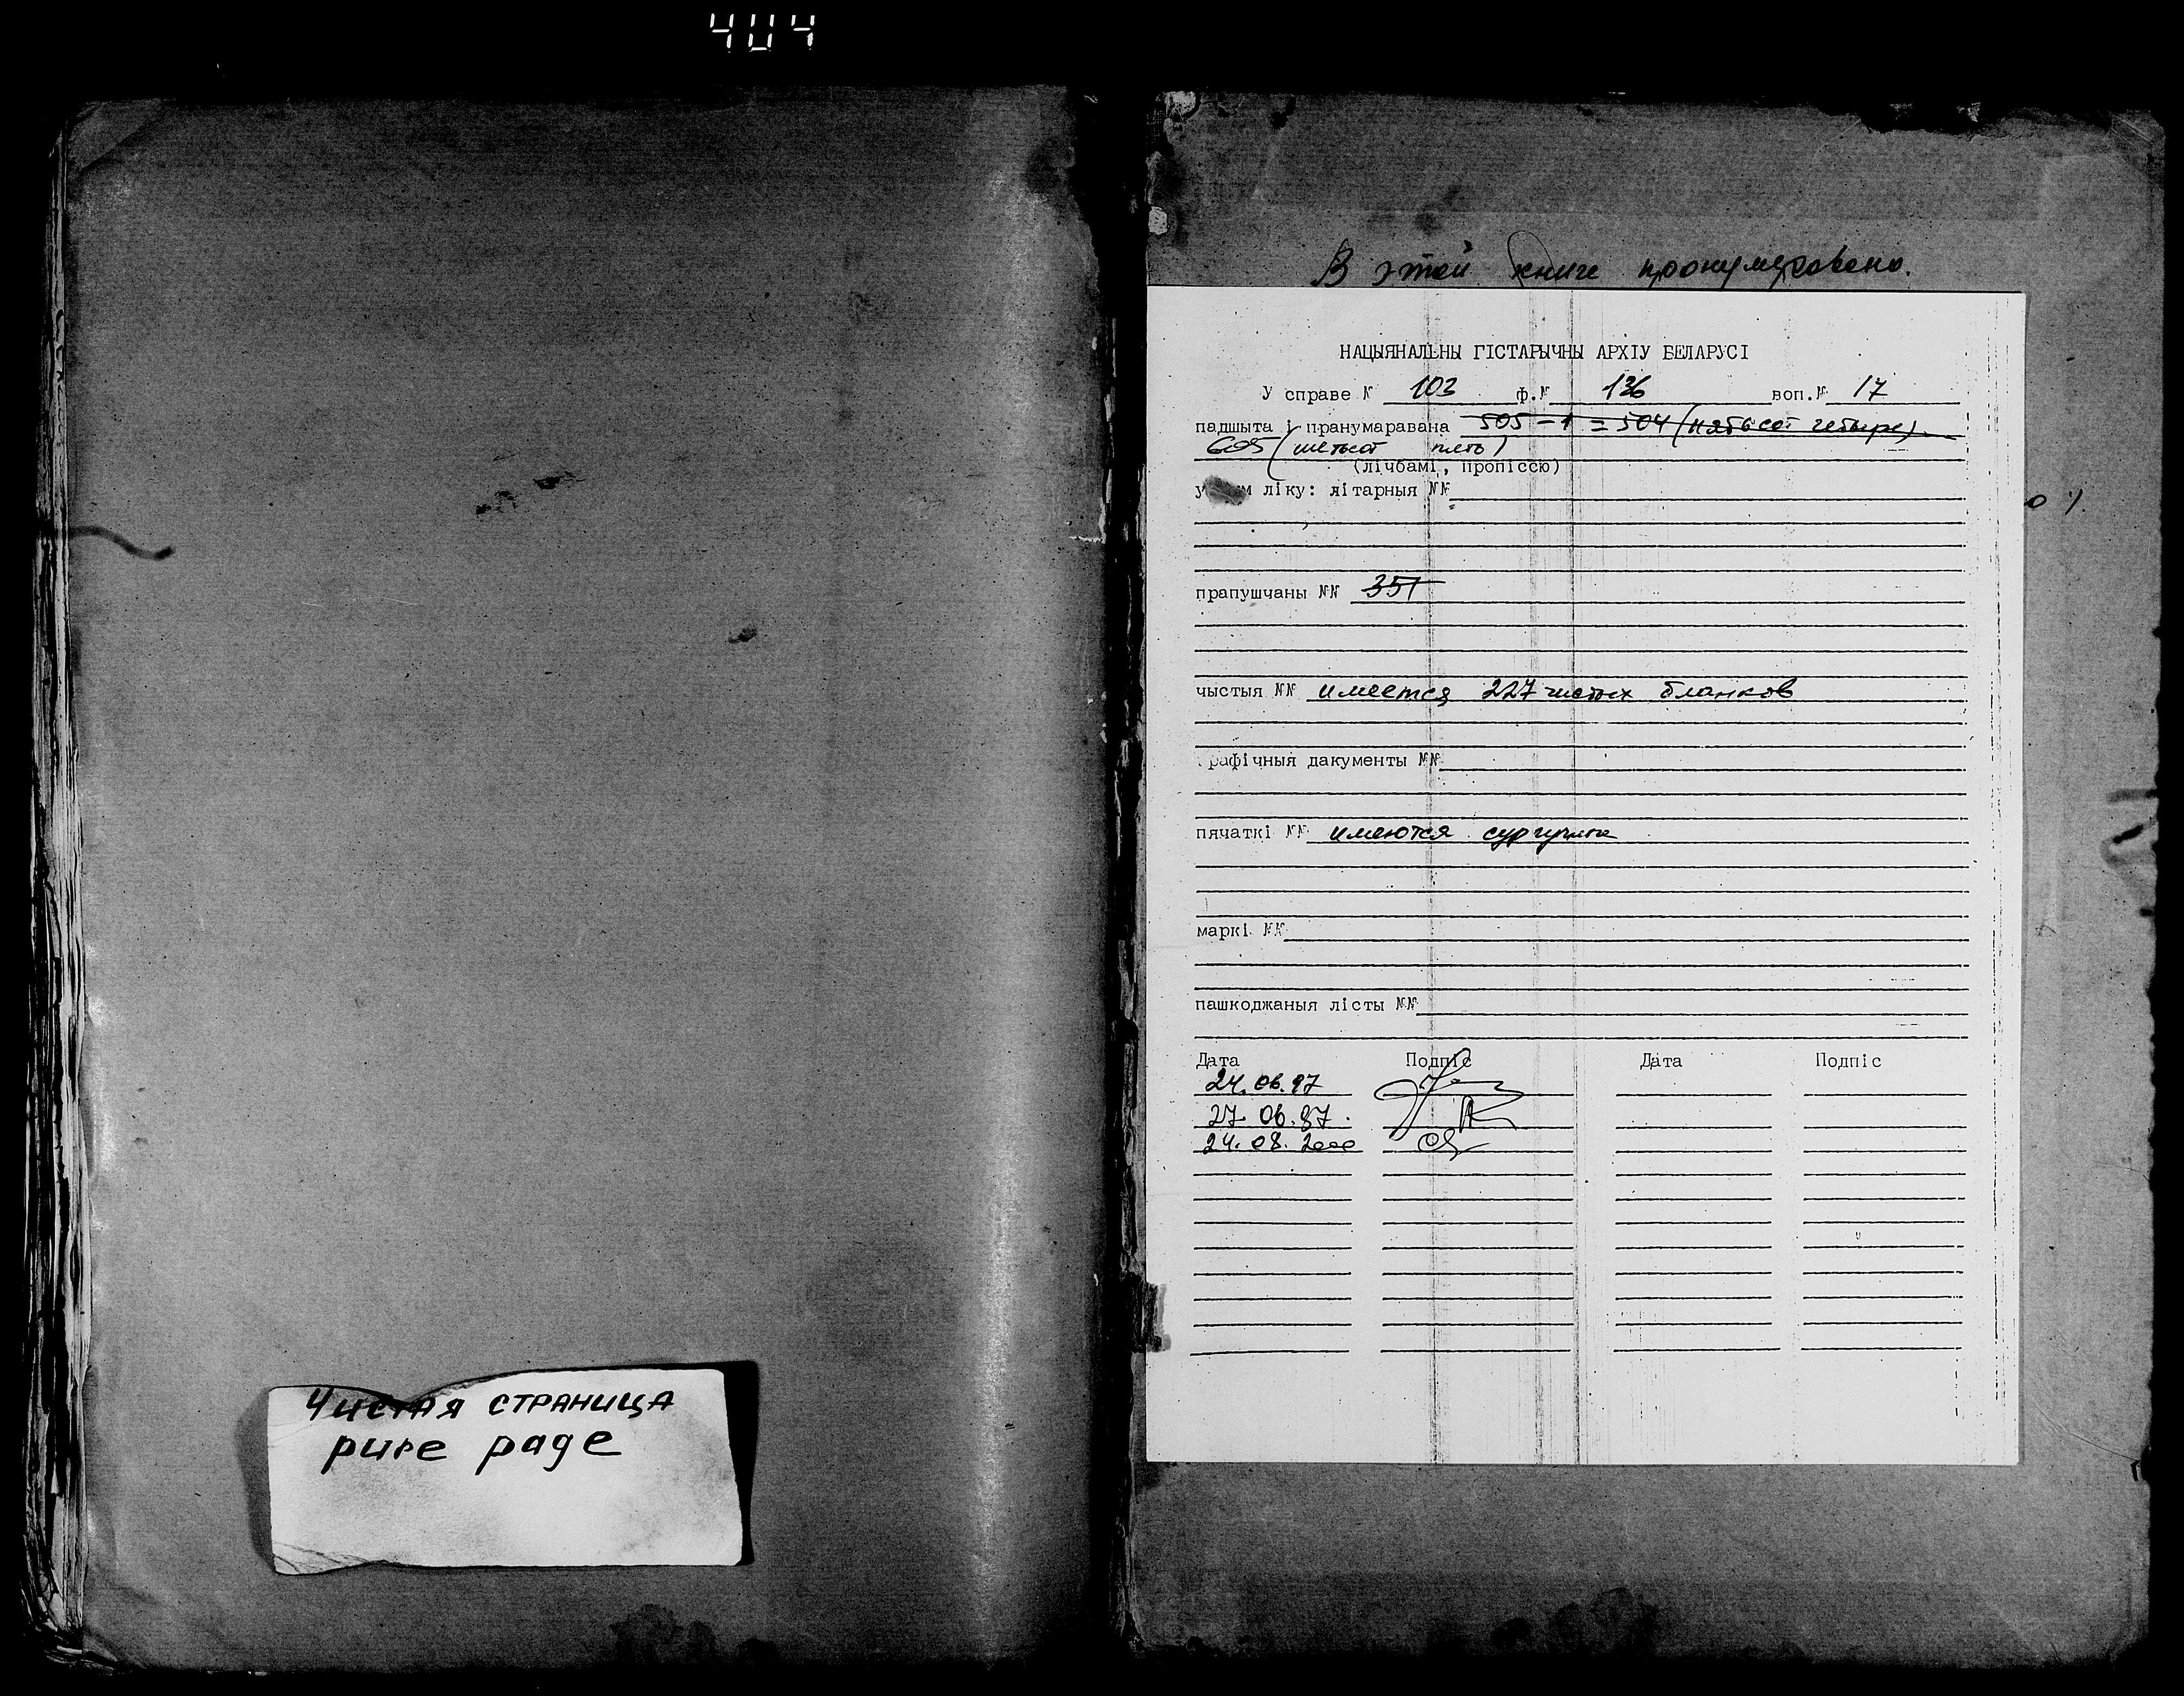 404
Чистая страница
pure page
В этой книге пронумеровано.
НАЦЫЯНАЛЬНЫ ГІСТАРЫЧНЫ АРХІУ БЕЛАРУСІ
У справе № 103 ф.№ 136 воп.№ 17
падшыта і пранумаравана 505 – 1 = 504 (пятьсот четыре)
605 (шестьсот пять)
(лічбамі, пропіссю)
ліку: літарныя №№
прапушчаны №№ 351
чыстыя №№ имеется 227 чистых бланков
графічныя дакументы №№
пячаткі №№ имеются сургучные
маркі №№
пашкоджаныя лісты №№
Дата Подпіс Дата Подпіс
24.06.97
27.06.97.
24.08.2000